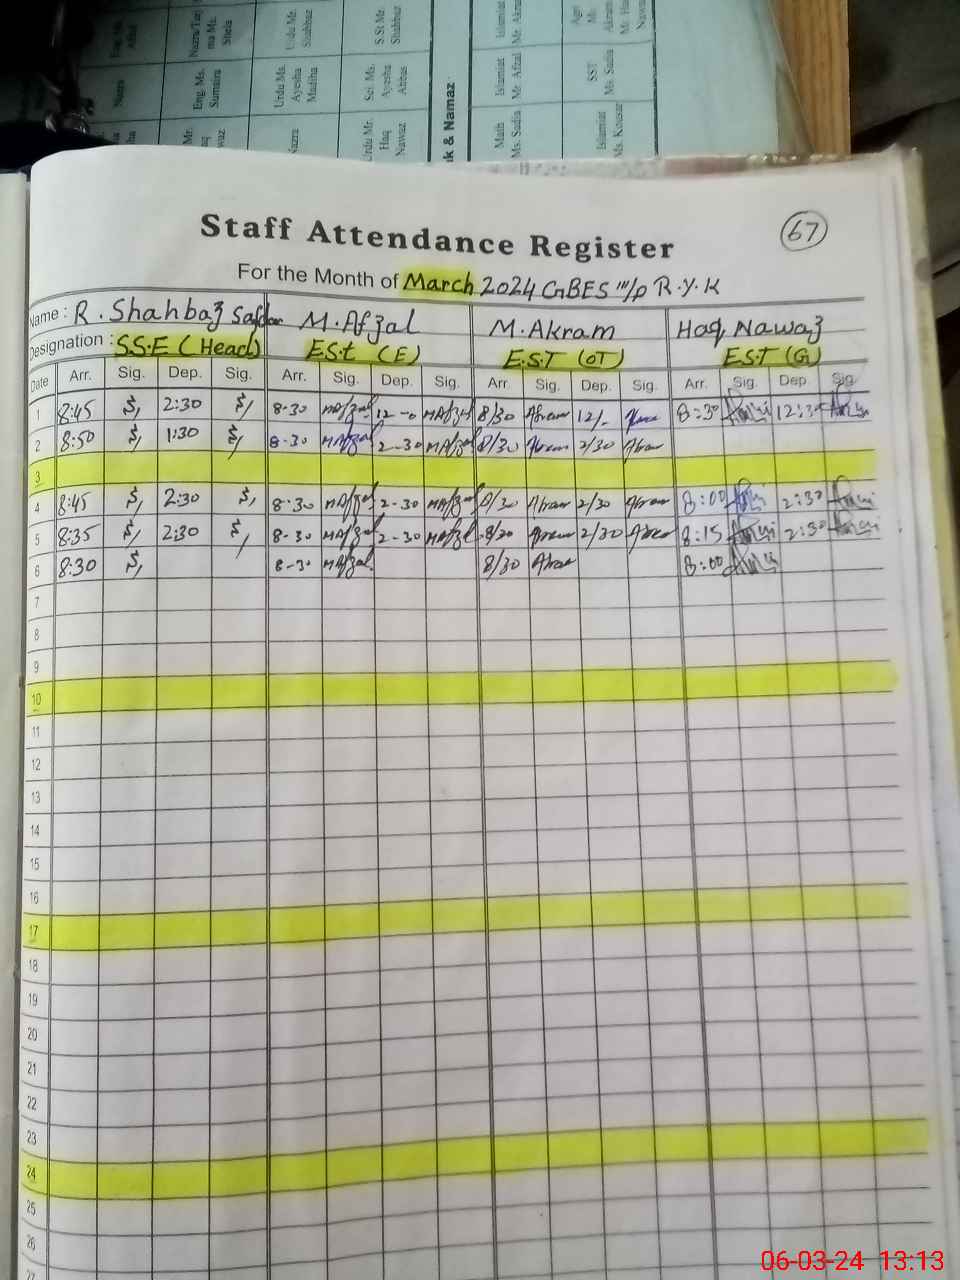 Eng. Ms.
Nazra/Tar
ma Ms.
Shela
Urdu Ms.
Shahbaz
S.St Mr.
Shahbaz
Islamiat
Mr. Akra
Agri
Mr.
Akram
Nazra
Eng. Ms.
Sumaira
Urdu Ms.
Ayesha
Madiha
Sci. Ms.
Ayesha
Abbas
Islamiat
Mr. Afzal
SST
Ms. Sadia
Mr.
Haq
Nawaz
Nazra
Urdu Mr.
Haq
Nawaz
k & Namaz
Math
Ms. Sadia
Islamiat
Ms. Kousar
67
Staff Attendance Register
For the Month of March 2024 GBES M/P R.Y.K
Name : R. Shahbaz Safdar M. Afzal M. Akram Haq Nawaz
Designation : S.S.E (Head) E.S.t (E) E.S.T (OT) E.S.T (G)
Date Arr. Sig. Dep. Sig. Arr. Sig. Dep. Sig. Arr. Sig. Dep. Sig. Arr. Sig. Dep. Sig.
1 8:45 2:30 8-30 MAfzal 12-0 MAfzal 8/30 Akram 12/- Akram 8:30 12:30
2 8:50 1:30 8-30 MAfzal 2-30 MAfzal 8/30 Akram 2/30 Akram
3
4 8:45 2:30 8-30 MAfzal 2-30 MAfzal 8/30 Akram 2/30 Akram 8:00 2:30
5 8:35 2:30 8-30 MAfzal 2-30 MAfzal 8/30 Akram 2/30 Akram 8:15 2:30
6 8:30 8-30 MAfzal 8/30 Akram 8:00
7
8
9
10
11
12
13
14
15
16
17
18
19
20
21
22
23
24
25
26
27
06-03-24 13:13